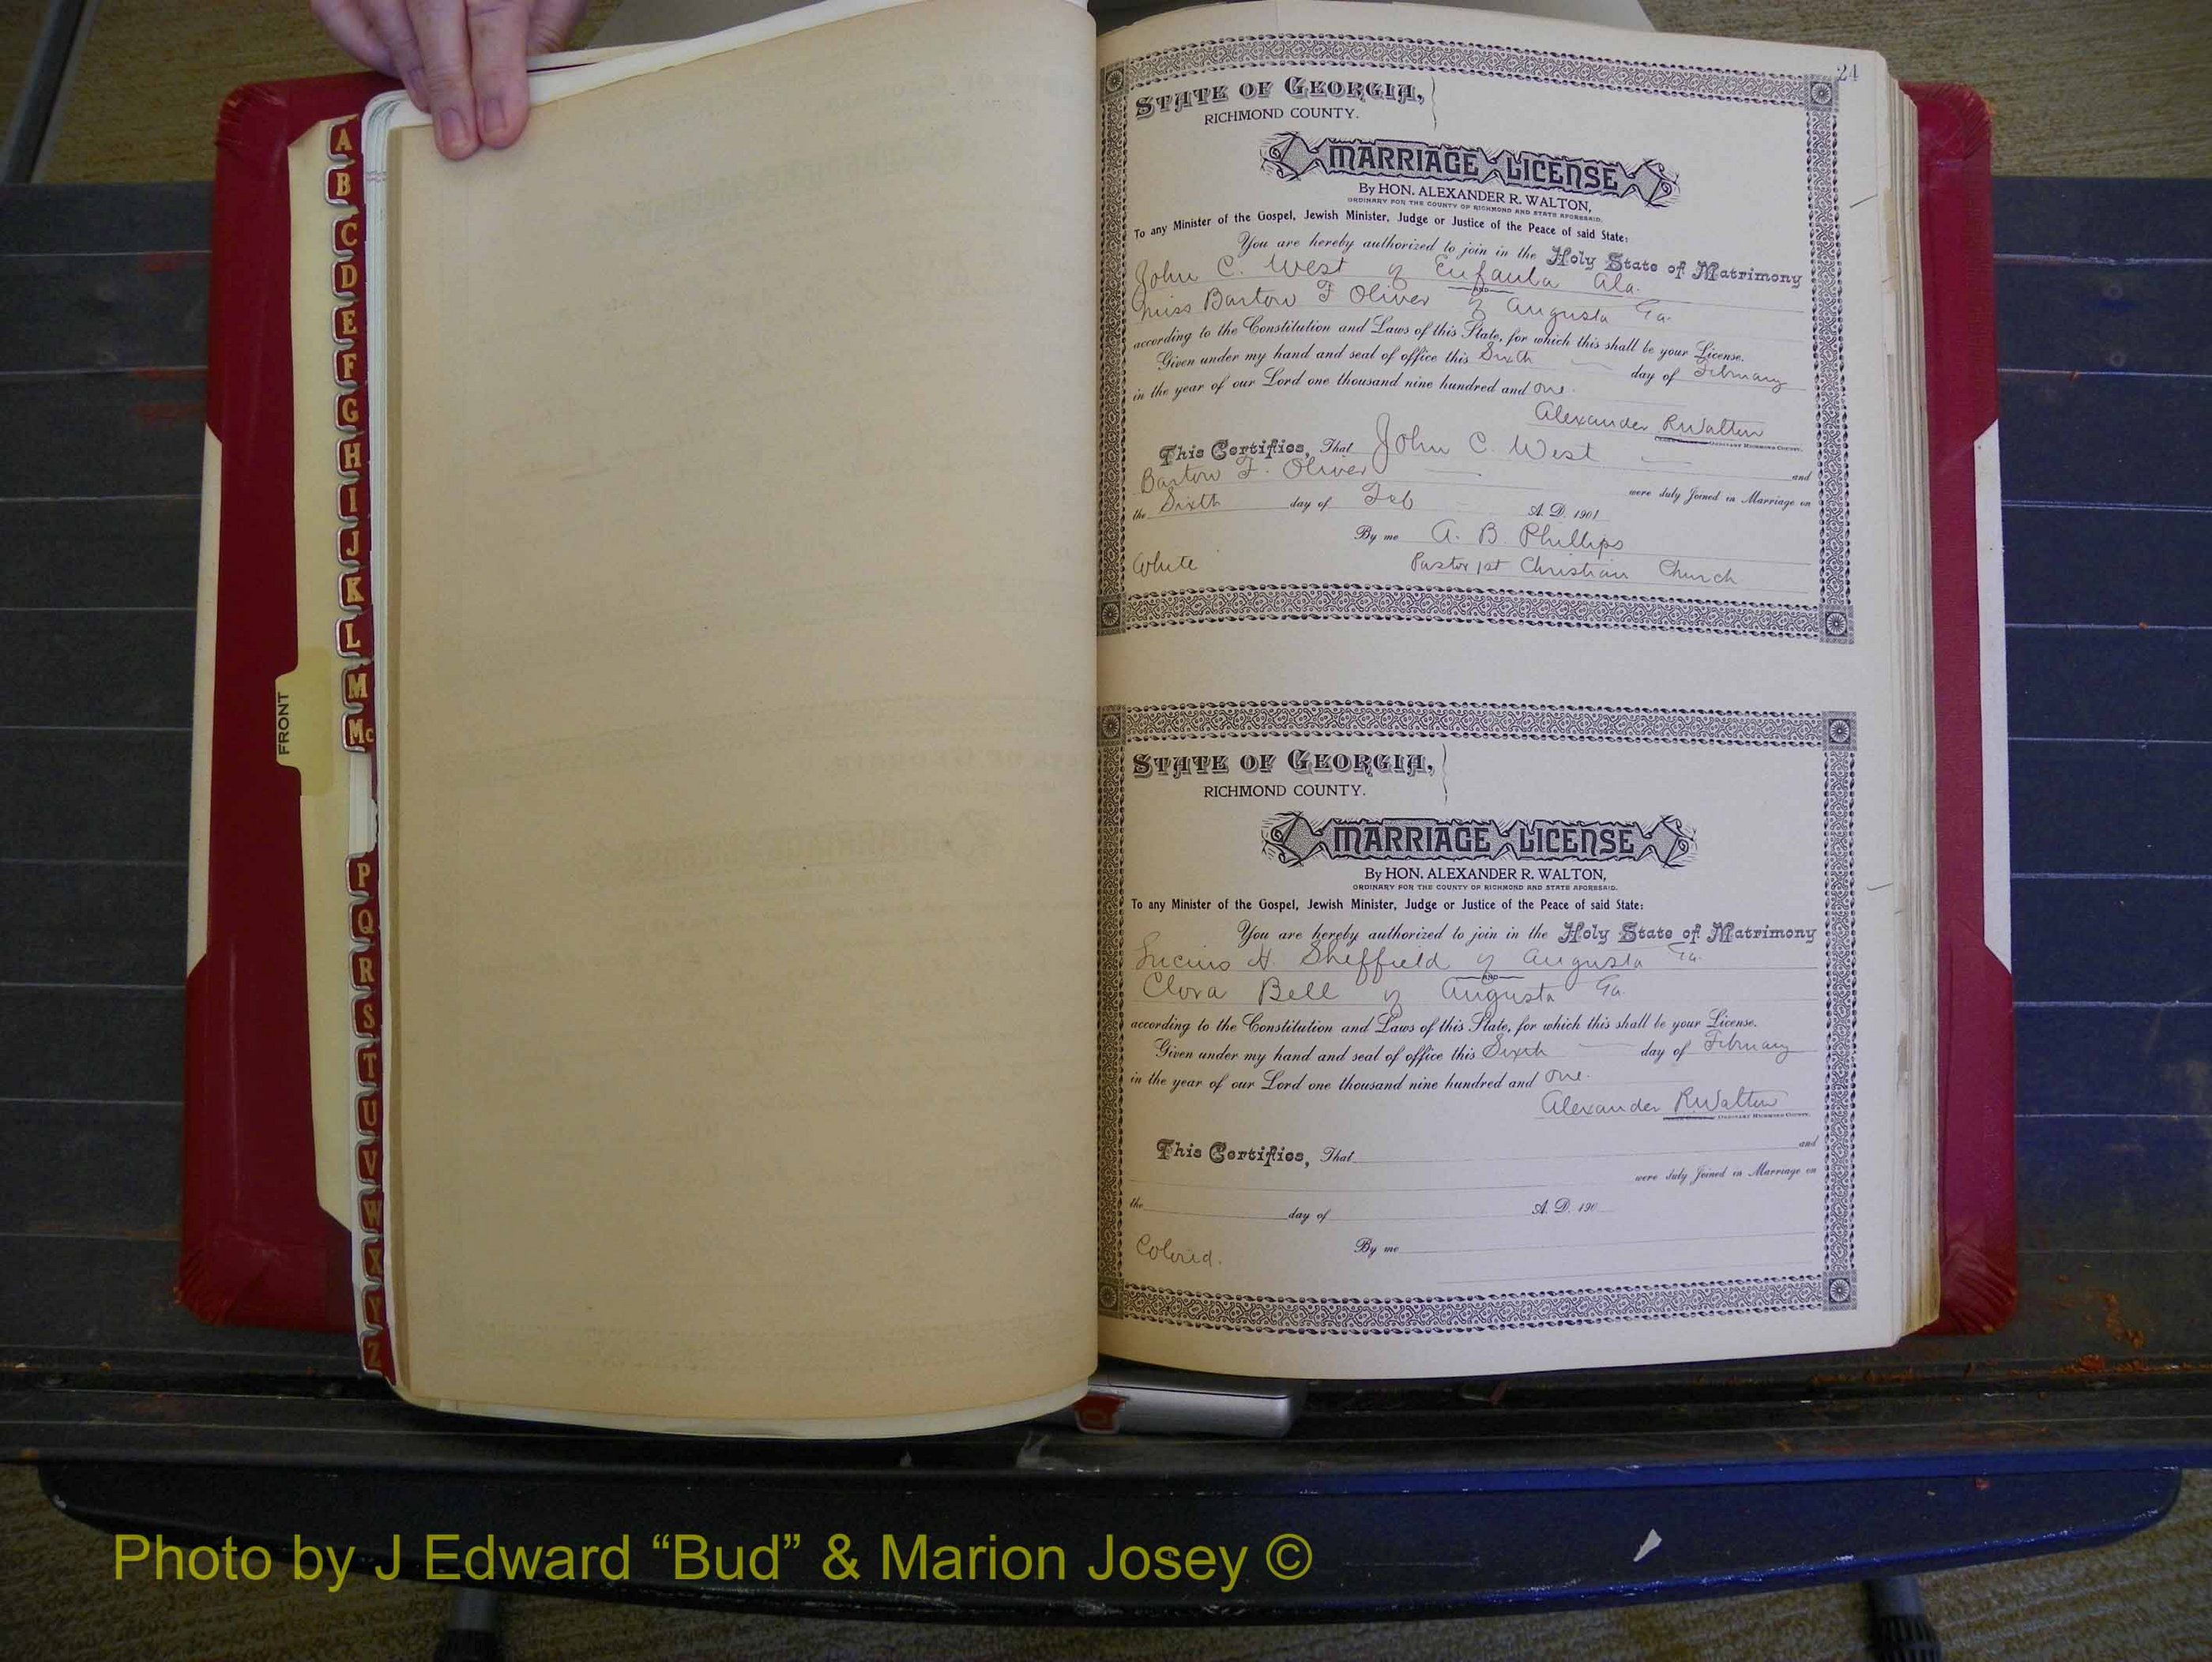 A
B
C
D
E
F
G
H
I
J
K
L
M
Mc
P
Q
R
S
T
U
V
W
X
Y
Z
FRONT
24
STATE OF GEORGIA,
RICHMOND COUNTY.
MARRIAGE LICENSE
By HON. ALEXANDER R. WALTON,
ORDINARY FOR THE COUNTY OF RICHMOND AND STATE AFORESAID.
To any Minister of the Gospel, Jewish Minister, Judge or Justice of the Peace of said State:
You are hereby authorized to join in the Holy State of Matrimony
John C. West of Eufaula Ala.
AND
Miss Barton F Oliver of Augusta Ga.
according to the Constitution and Laws of this State, for which this shall be your License.
Given under my hand and seal of office this Sixth day of February
in the year of our Lord one thousand nine hundred and One.
Alexander R Walton
ORDINARY RICHMOND COUNTY.
This Certifies, That John C. West and
Barton F. Oliver were duly Joined in Marriage on
the Sixth day of Feb A. D. 1901
By me A. B. Phillips
White Pastor 1st Christian Church
STATE OF GEORGIA,
RICHMOND COUNTY.
MARRIAGE LICENSE
By HON. ALEXANDER R. WALTON,
ORDINARY FOR THE COUNTY OF RICHMOND AND STATE AFORESAID.
To any Minister of the Gospel, Jewish Minister, Judge or Justice of the Peace of said State:
You are hereby authorized to join in the Holy State of Matrimony
Lucius H. Sheffield of Augusta Ga.
AND
Clora Bell of Augusta Ga.
according to the Constitution and Laws of this State, for which this shall be your License.
Given under my hand and seal of office this Sixth day of February
in the year of our Lord one thousand nine hundred and One.
Alexander R Walton
ORDINARY RICHMOND COUNTY.
This Certifies, That and
were duly Joined in Marriage on
the day of A. D. 190
Colored. By me
Photo by J Edward “Bud” & Marion Josey ©